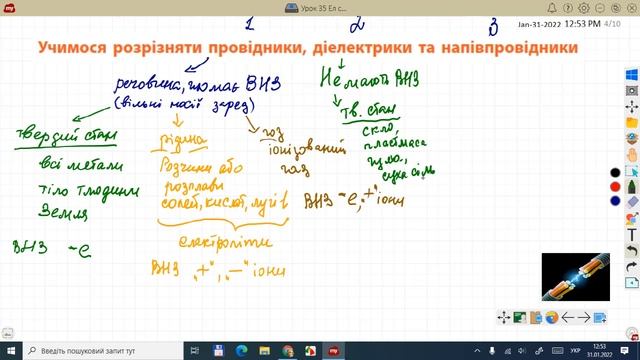 Урок 35 Ел с...
Jan-31-2022 12:53 PM 4/10
1 2 3
Учимося розрізняти провідники, діелектрики та напівпровідники
речовина, що має ВНЗ
(вільні носії заряд)
Не мають ВНЗ
тв. стан
скло,
пластмаса
суха сіль
твердий стан
всі метали
тіло людини
Земля
ВНЗ -е
рідина
Розчини або
розплави
солей, кислот, лугів
електроліти
ВНЗ "+", "-" іони
газ
іонізований
газ
ВНЗ -е, "+" іони
Введіть пошуковий запит тут
УКР
12:53
31.01.2022